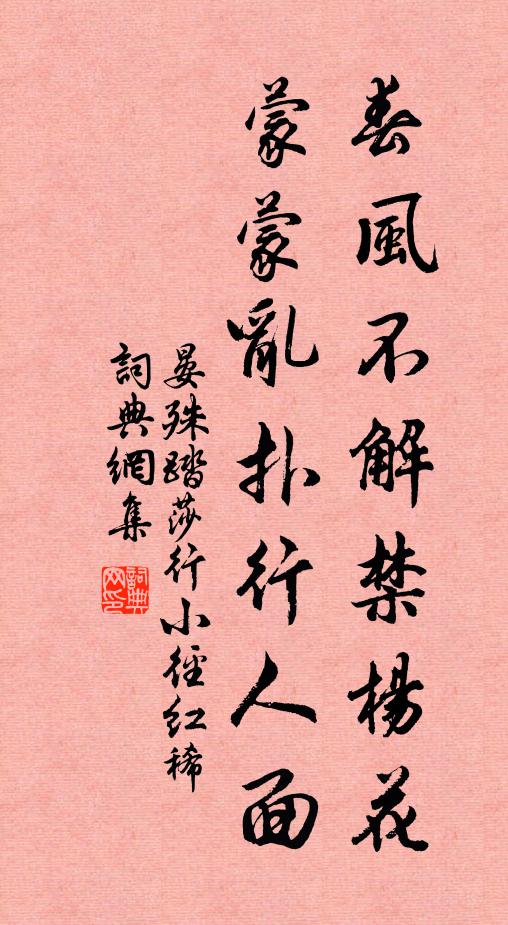 春風不解禁楊花
蒙蒙亂扑行人面
晏殊踏莎行小徑紅稀
詞典網集
詞典网印